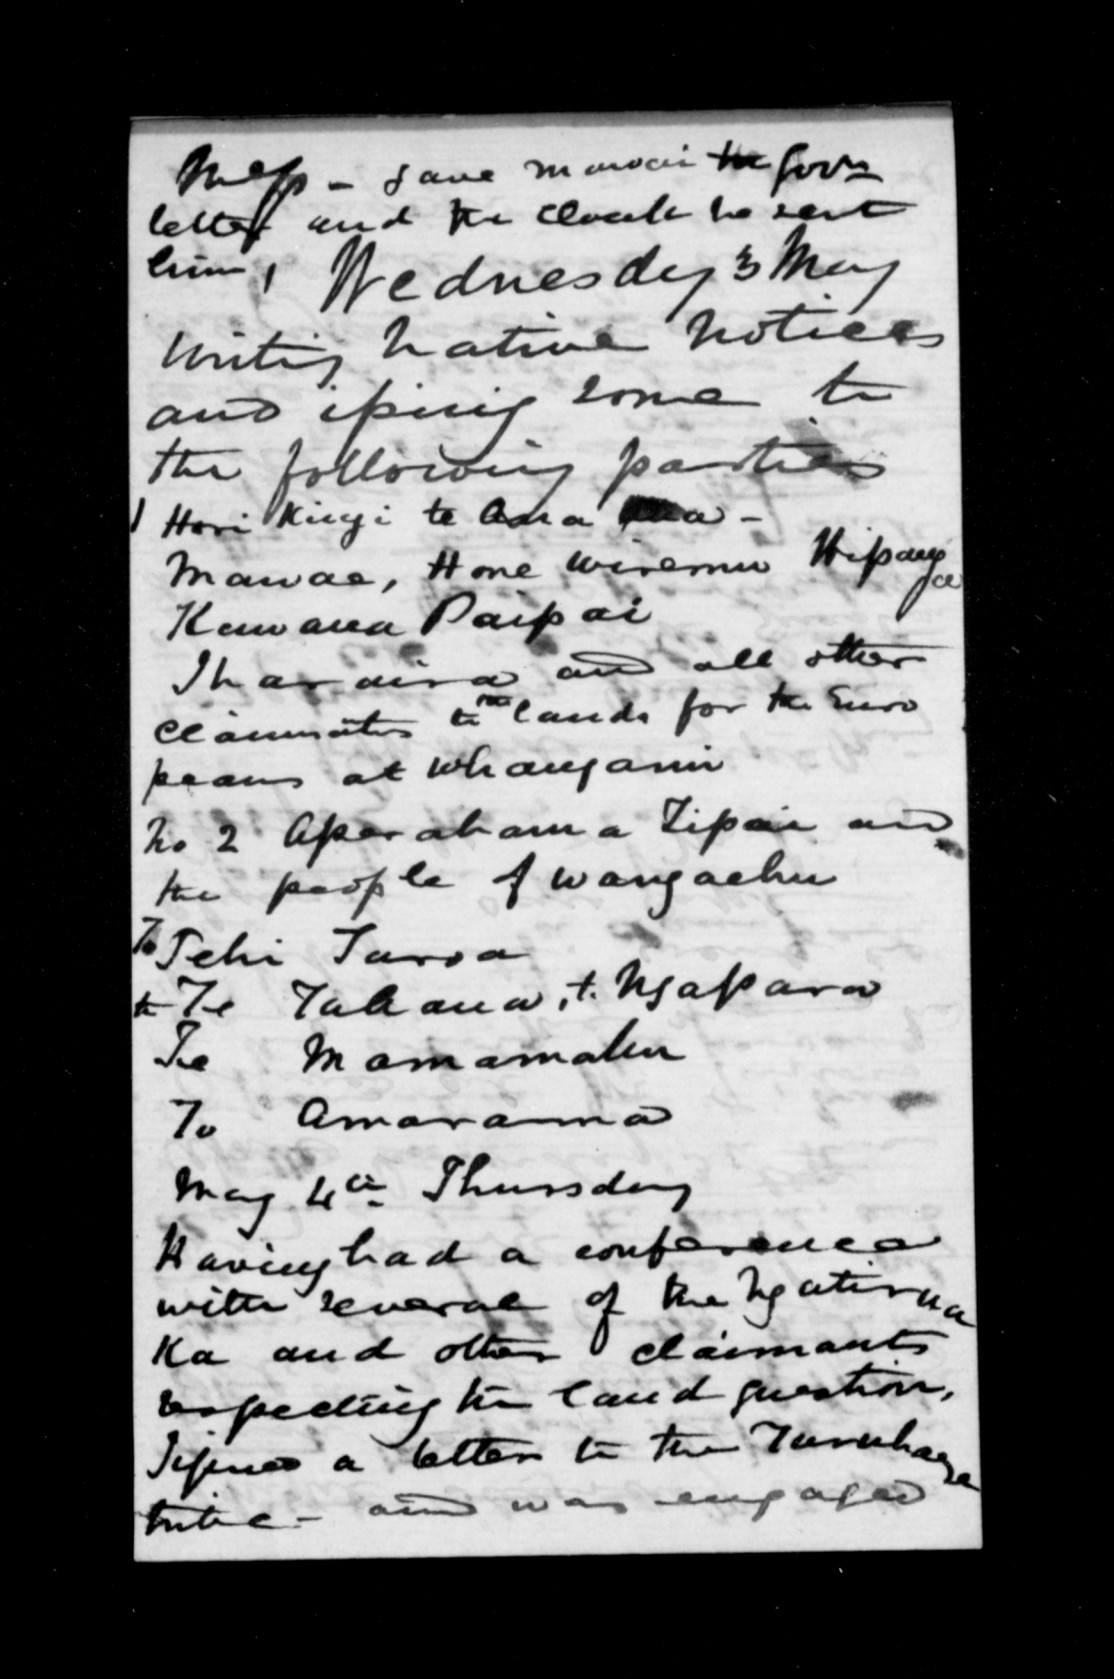 Messrs - gave Mawai the Govrs
letter and the cloak he sent
him, Wednesday 3 May
Writing native notices
and issuing some to
the following parties
1 Hori Kingi te Ana ua -
Mawae, Hone Wiremu Hipango
Kawana Paipai
Iharaira and all other
claimants to the lands for the Euro
peans at Whanganui
No 2 Aperahama Tipae and
the people of Wangaehu
To Pehi Turoa
to Te Tahana, t. Ngapara
To Mamamaku
To Amarama
May 4th Thursday
Having had a conference
with several of the Ngatirua
Ka and other claimants
respecting the land question,
I issued a letter to the Turakaenga
tribe - and was engaged